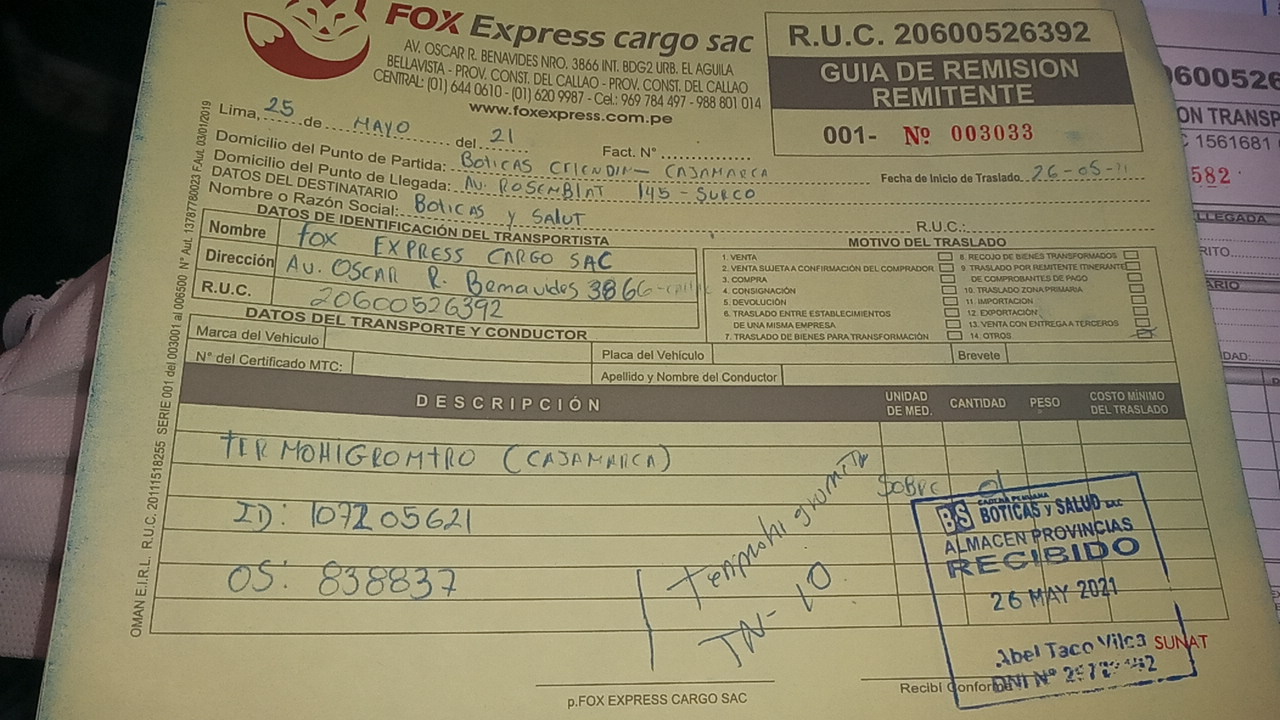 FOX Express cargo sac
AV. OSCAR R. BENAVIDES NRO. 3866 INT. BDG2 URB. EL AGUILA
BELLAVISTA - PROV. CONST. DEL CALLAO - PROV. CONST. DEL CALLAO
CENTRAL: (01) 644 0610 - (01) 620 9987 - Cel.: 969 784 497 - 988 801 014
www.foxexpress.com.pe
R.U.C. 20600526392
GUIA DE REMISION
REMITENTE
001- Nº 003033
Lima, 25 de MAYO del 21 Fact. N°
Domicilio del Punto de Partida: BOTICAS CELENDIN - CAJAMARCA
Fecha de Inicio de Traslado 26-05-
Domicilio del Punto de Llegada: AV. ROSENBLAT 145 - SURCO
DATOS DEL DESTINATARIO
Nombre o Razón Social: BOTICAS y SALUT R.U.C.:
DATOS DE IDENTIFICACIÓN DEL TRANSPORTISTA
Nombre FOX EXPRESS CARGO SAC
Dirección AV. OSCAR R. Benavides 3866
R.U.C. 20600526392
MOTIVO DEL TRASLADO
1. VENTA
2. VENTA SUJETA A CONFIRMACIÓN DEL COMPRADOR
3. COMPRA
4. CONSIGNACIÓN
5. DEVOLUCIÓN
6. TRASLADO ENTRE ESTABLECIMIENTOS
DE UNA MISMA EMPRESA
7. TRASLADO DE BIENES PARA TRANSFORMACIÓN
8. RECOJO DE BIENES TRANSFORMADOS
9. TRASLADO POR REMITENTE ITINERANTE
DE COMPROBANTES DE PAGO
10. TRASLADO ZONA PRIMARIA
11. IMPORTACIÓN
12. EXPORTACIÓN
13. VENTA CON ENTREGA A TERCEROS
14. OTROS
DATOS DEL TRANSPORTE Y CONDUCTOR
Marca del Vehículo Placa del Vehículo Brevete
N° del Certificado MTC: Apellido y Nombre del Conductor
DESCRIPCIÓN UNIDAD DE MED. CANTIDAD PESO COSTO MÍNIMO DEL TRASLADO
TERMOHIGROMTRO (CAJAMARCA)
SOBRE 01
ID: 107205621
OS: 838837
TN-10
BS CADENA PERUANA
BOTICAS y SALUD S.A.C.
ALMACEN PROVINCIAS
RECIBIDO
26 MAY 2021
Abel Taco Vilca
DNI Nº
SUNAT
p.FOX EXPRESS CARGO SAC
Recibí Conforme
OMAN E.I.R.L. R.U.C. 20111518255 SERIE 001 del 003001 al 006500 N° Aut. 13787780023 F.Aut. 03/01/2019
1561681
582
LLEGADA